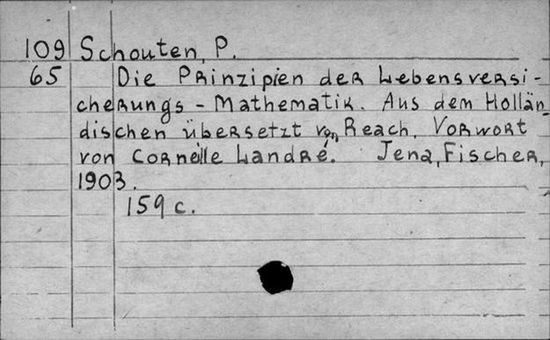 109 Schouten, P.
65 Die Prinzipien der Lebensversi-
cherungs - Mathematik. Aus dem Hollän-
dischen übersetzt von Reach. Vorwort
von Cornelle Landré. Jena, Fischer,
1903.
159 c.